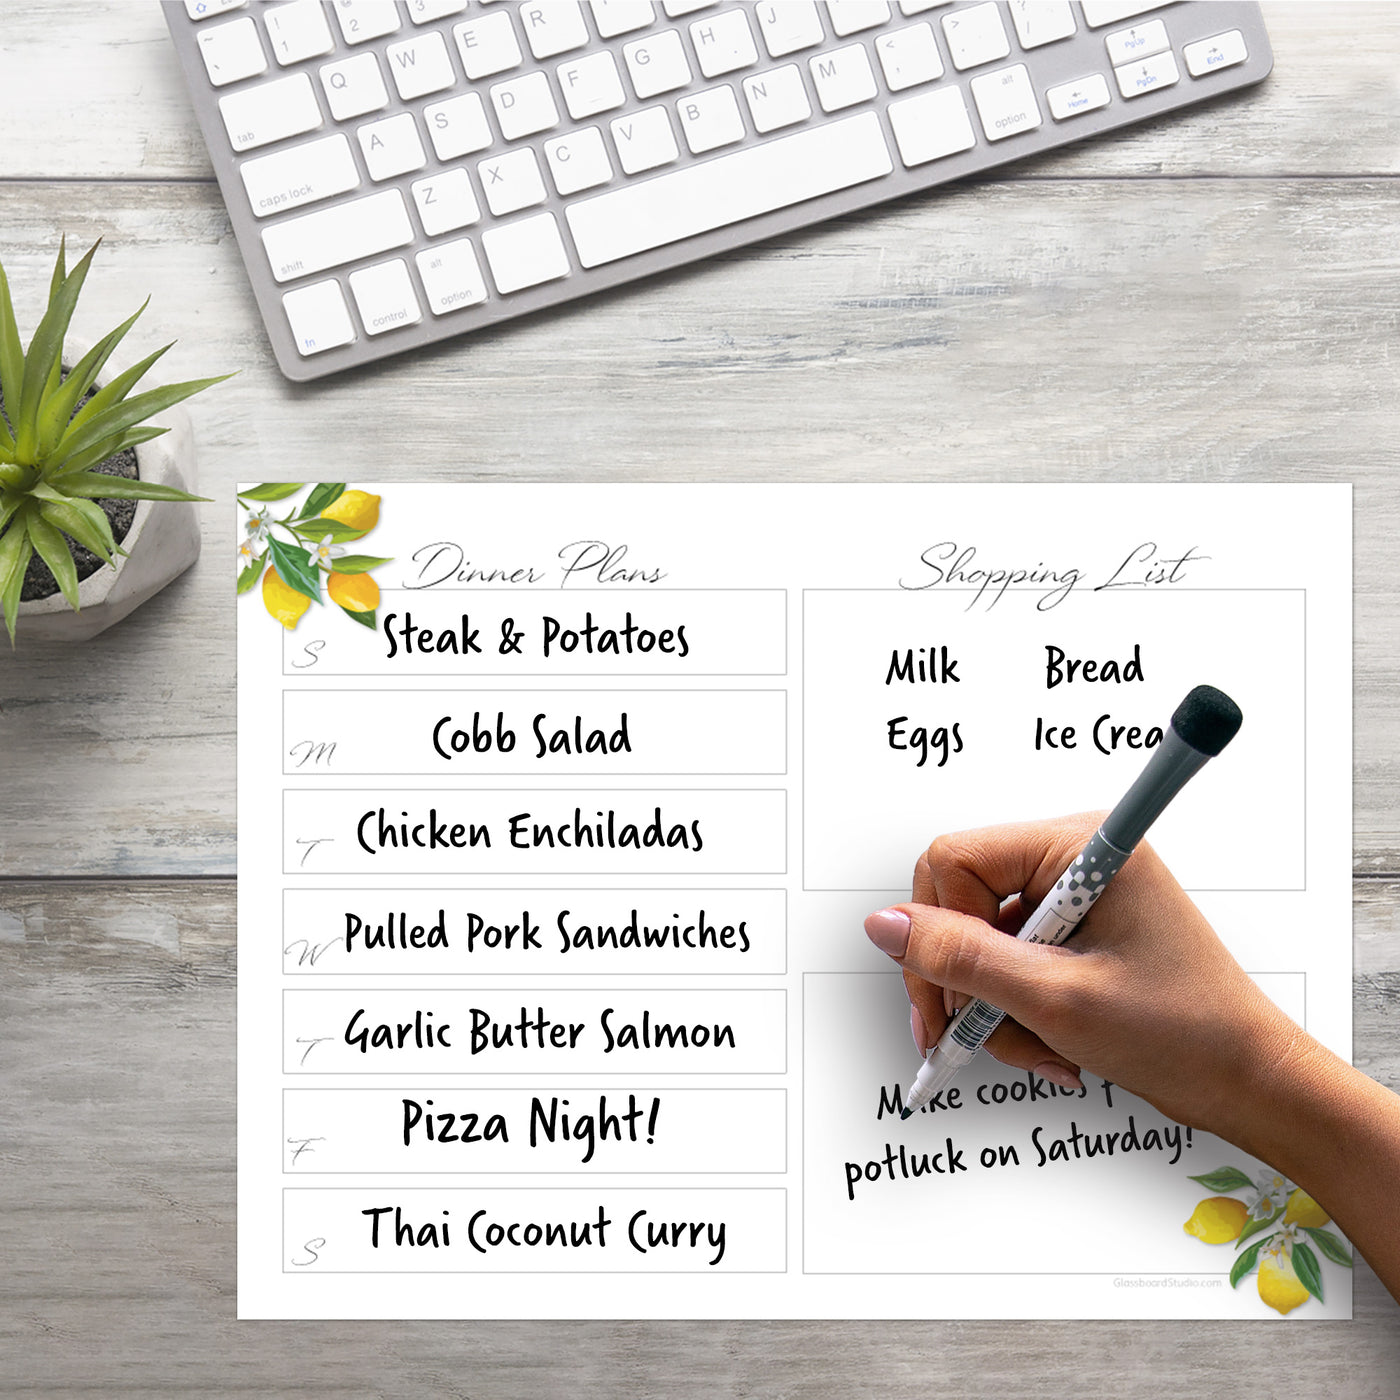 ~
`
!
1
@
2
#
3
Q
W
E
R
T
Y
tab
A
S
D
F
G
H
J
caps lock
Z
X
C
V
B
N
M
<
,
>
.
?
/
shift
fn
control
alt
option
alt
option
Home
PgUp
PgDn
End
Dinner Plans
S Steak & Potatoes
M Cobb Salad
T Chicken Enchiladas
W Pulled Pork Sandwiches
T Garlic Butter Salmon
F Pizza Night!
S Thai Coconut Curry
Shopping List
Milk Bread
Eggs Ice Crea
Make cookies
potluck on Saturday!
GlassboardStudio.com